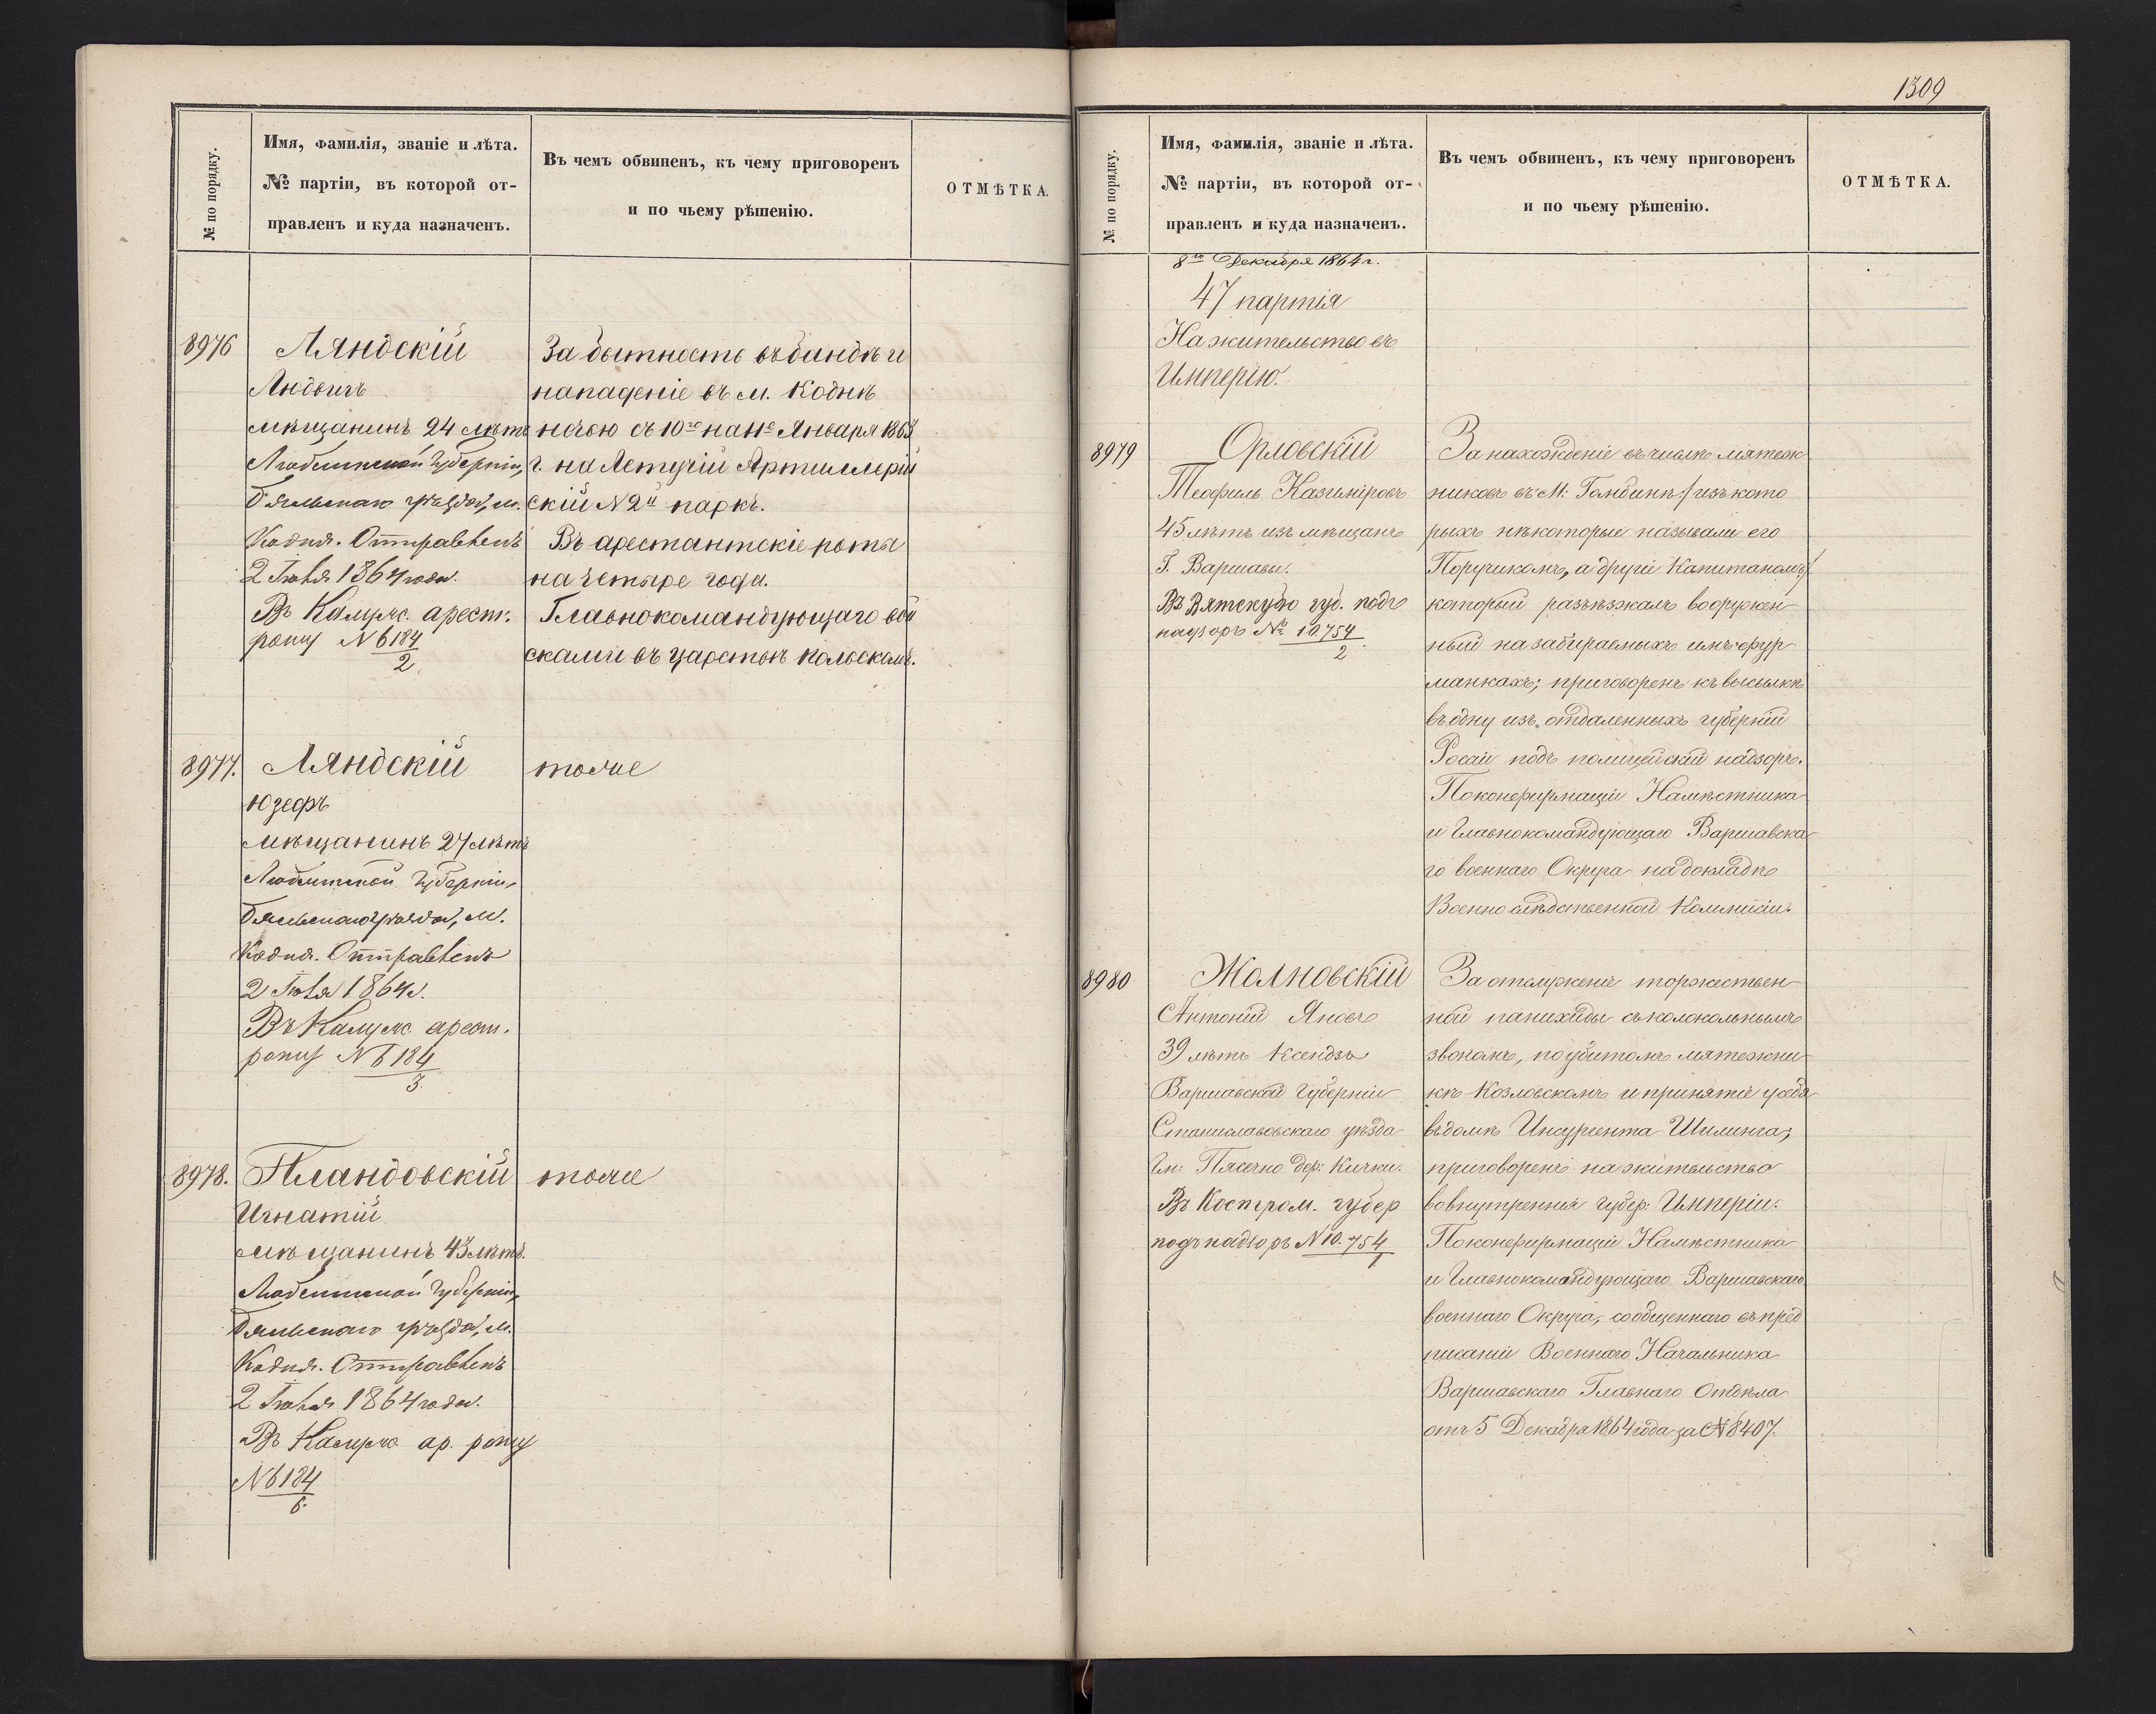 № по порядку.
Имя, фамилія, званіе и лѣта.
№ партіи, въ которой от-
правленъ и куда назначенъ.
Въ чемъ обвиненъ, къ чему приговоренъ
и по чьему рѣшенію.
ОТМѢТКА.
8976
Ляндскій
Людвигъ
мѣщанинъ 24 лѣтъ
Люблинской Губерніи,
Бяльскаго уѣзда, м.
Кодня. Отправленъ
2 Іюля 1864 года.
Въ Калужс. арест.
роту № 6184
2.
За бытность въ бандѣ и
нападеніе въ м. Коднѣ
ночью съ 10го на 11е Января 1863
г. на Летучій Артиллерій
скій № 2й паркъ.
Въ арестантскіе роты
на четыре года.
Главнокомандующаго вой
сками въ Царствѣ Польскомъ.
8977.
Ляндскій
Юзефъ
мѣщанинъ 27 лѣтъ
Люблинской Губерніи,
Бяльскаго уѣзда, м.
Кодня. Отправленъ
2 Іюля 1864 г.
Въ Калужс. арест.
роту № 6184
3.
тоже
8978.
Пландовскій
Игнатій
мѣщанинъ 43 лѣтъ.
Люблинской Губерніи,
Бяльскаго уѣзда, м.
Кодня. Отправленъ
2 Іюля 1864 года.
Въ Калужс. ар. роту
№ 6184
6.
тоже
1309
№ по порядку.
Имя, фамилія, званіе и лѣта.
№ партіи, въ которой от-
правленъ и куда назначенъ.
Въ чемъ обвиненъ, къ чему приговоренъ
и по чьему рѣшенію.
ОТМѢТКА.
8го Декабря 1864 г.
47 партія
На жительство въ
Имперію.
8979
Орловскій
Теофиль Казиміровъ
45 лѣтъ изъ мѣщанъ
Г. Варшавы.
Въ Вятскую губ. подъ
надзоръ № 10.754
2.
За нахожденіе въ числѣ мятеж
никовъ въ М: Гомбинѣ /изъ кото
рыхъ нѣкоторые называли его
Поручикомъ, а другіе Капитаномъ/
который разъѣзжалъ вооружен
ный на забираемыхъ имъ фур
манкахъ; приговоренъ къ высылкѣ
въ одну изъ отдаленныхъ губерній
Росіи подъ полицейскій надзоръ.
По конфирмаціи Намѣстника
и Главнокомандующаго Варшавска
го военнаго Округа на докладѣ
Военно слѣдственной Коммисіи.
8980
Жолновскій
Антоній Яновъ
39 лѣтъ Ксендзъ
Варшавской Губерніи
Станиславовскаго уѣзда
Гм: Пясечно дер: Кички.
Въ Костром. губер
подъ надзоръ № 10.754
1
За отслуженіе торжествен
ной панихиды съ колокольнымъ
звономъ, по убитомъ мятежни
кѣ Козловскомъ и принятіе у себя
въ домѣ Инсургента Шилинга;
приговоренъ на жительство
во внутреннія губер: Имперіи.
По конфирмаціи Намѣстника
и Главнокомандующаго Варшавскаго
военнаго Округа, сообщеннаго въ пред
писаніи Военнаго Начальника
Варшавскаго Главнаго Отдѣла
отъ 5 Декабря 1864 года за № 8407.